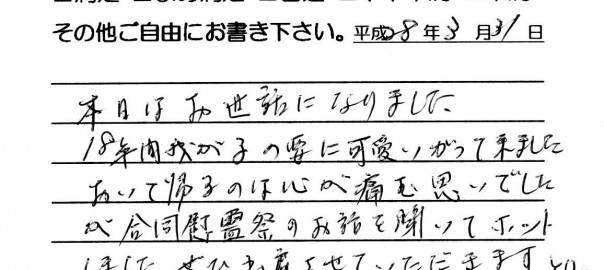 その他ご自由にお書き下さい。平成28年3月31日
本日はお世話になりました
18年間我が子の要に可愛いがって来ました
おいて帰るのは心が痛む思いでした
が合同慰霊祭のお話を聞いてホット
しました ぜひ出席させていただきます